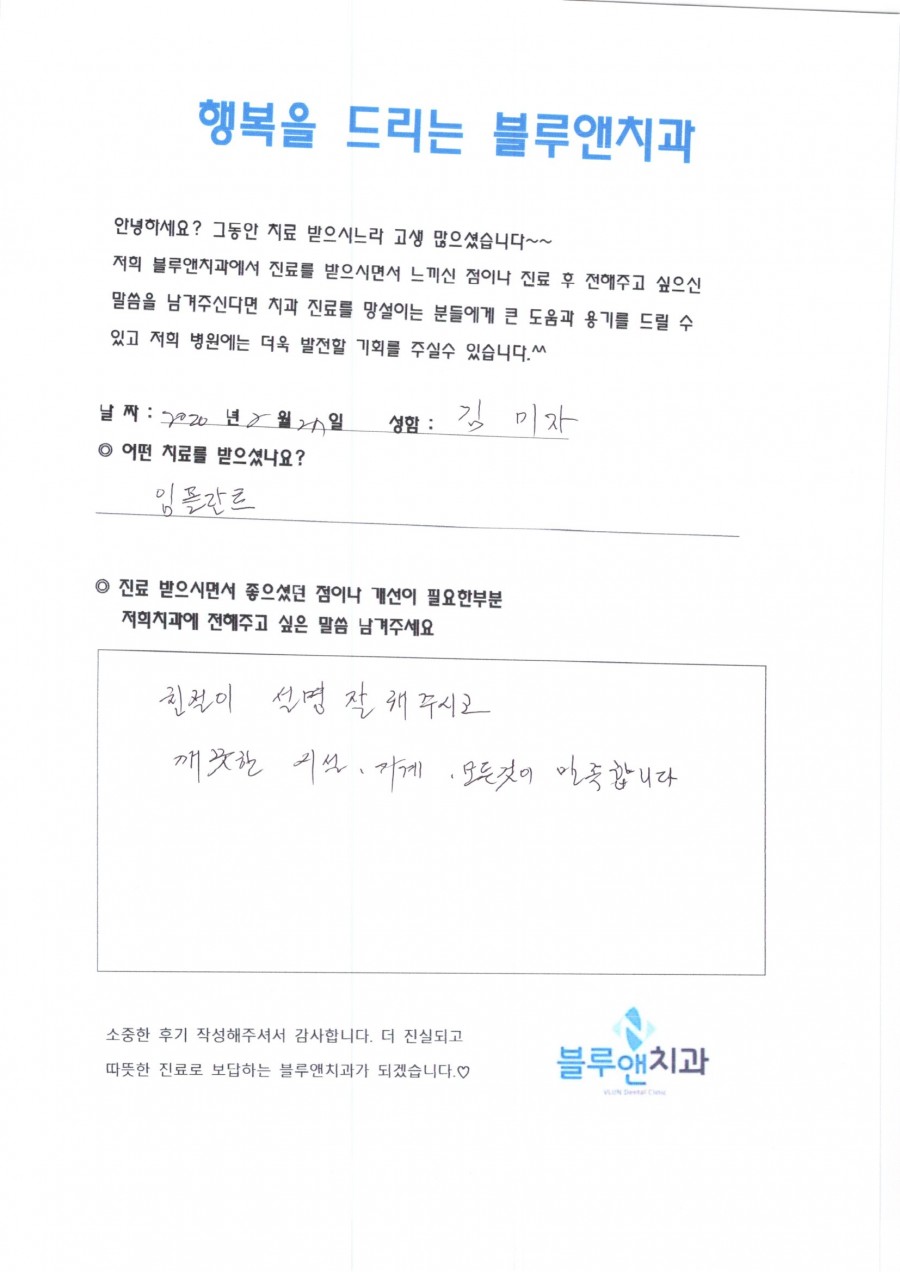 행복을 드리는 블루앤치과
안녕하세요? 그동안 치료 받으시느라 고생 많으셨습니다~~
저희 블루앤치과에서 진료를 받으시면서 느끼신 점이나 진료 후 전해주고 싶으신
말씀을 남겨주신다면 치과 진료를 망설이는 분들에게 큰 도움과 용기를 드릴 수
있고 저희 병원에는 더욱 발전할 기회를 주실수 있습니다.^^
날 짜 : 2020 년 2 월 일 성함 : 김 미자
◎ 어떤 치료를 받으셨나요?
임플란트
◎ 진료 받으시면서 좋으셨던 점이나 개선이 필요한부분
저희치과에 전해주고 싶은 말씀 남겨주세요
친절이 설명 잘 해 주시고
깨끗한 시설、 모든것이 만족합니다
소중한 후기 작성해주셔서 감사합니다. 더 진실되고
따뜻한 진료로 보답하는 블루앤치과가 되겠습니다.♡
블루앤치과